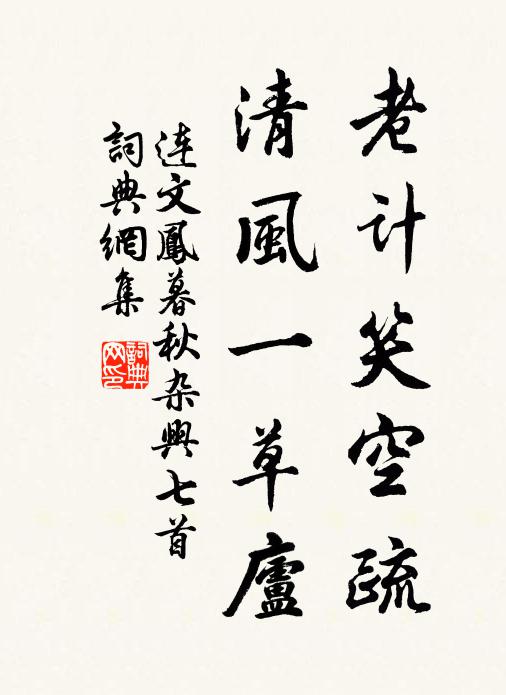 老计笑空疏
清風一草廬
连文鳳暮秋杂興七首
詞典網集
詞典网印